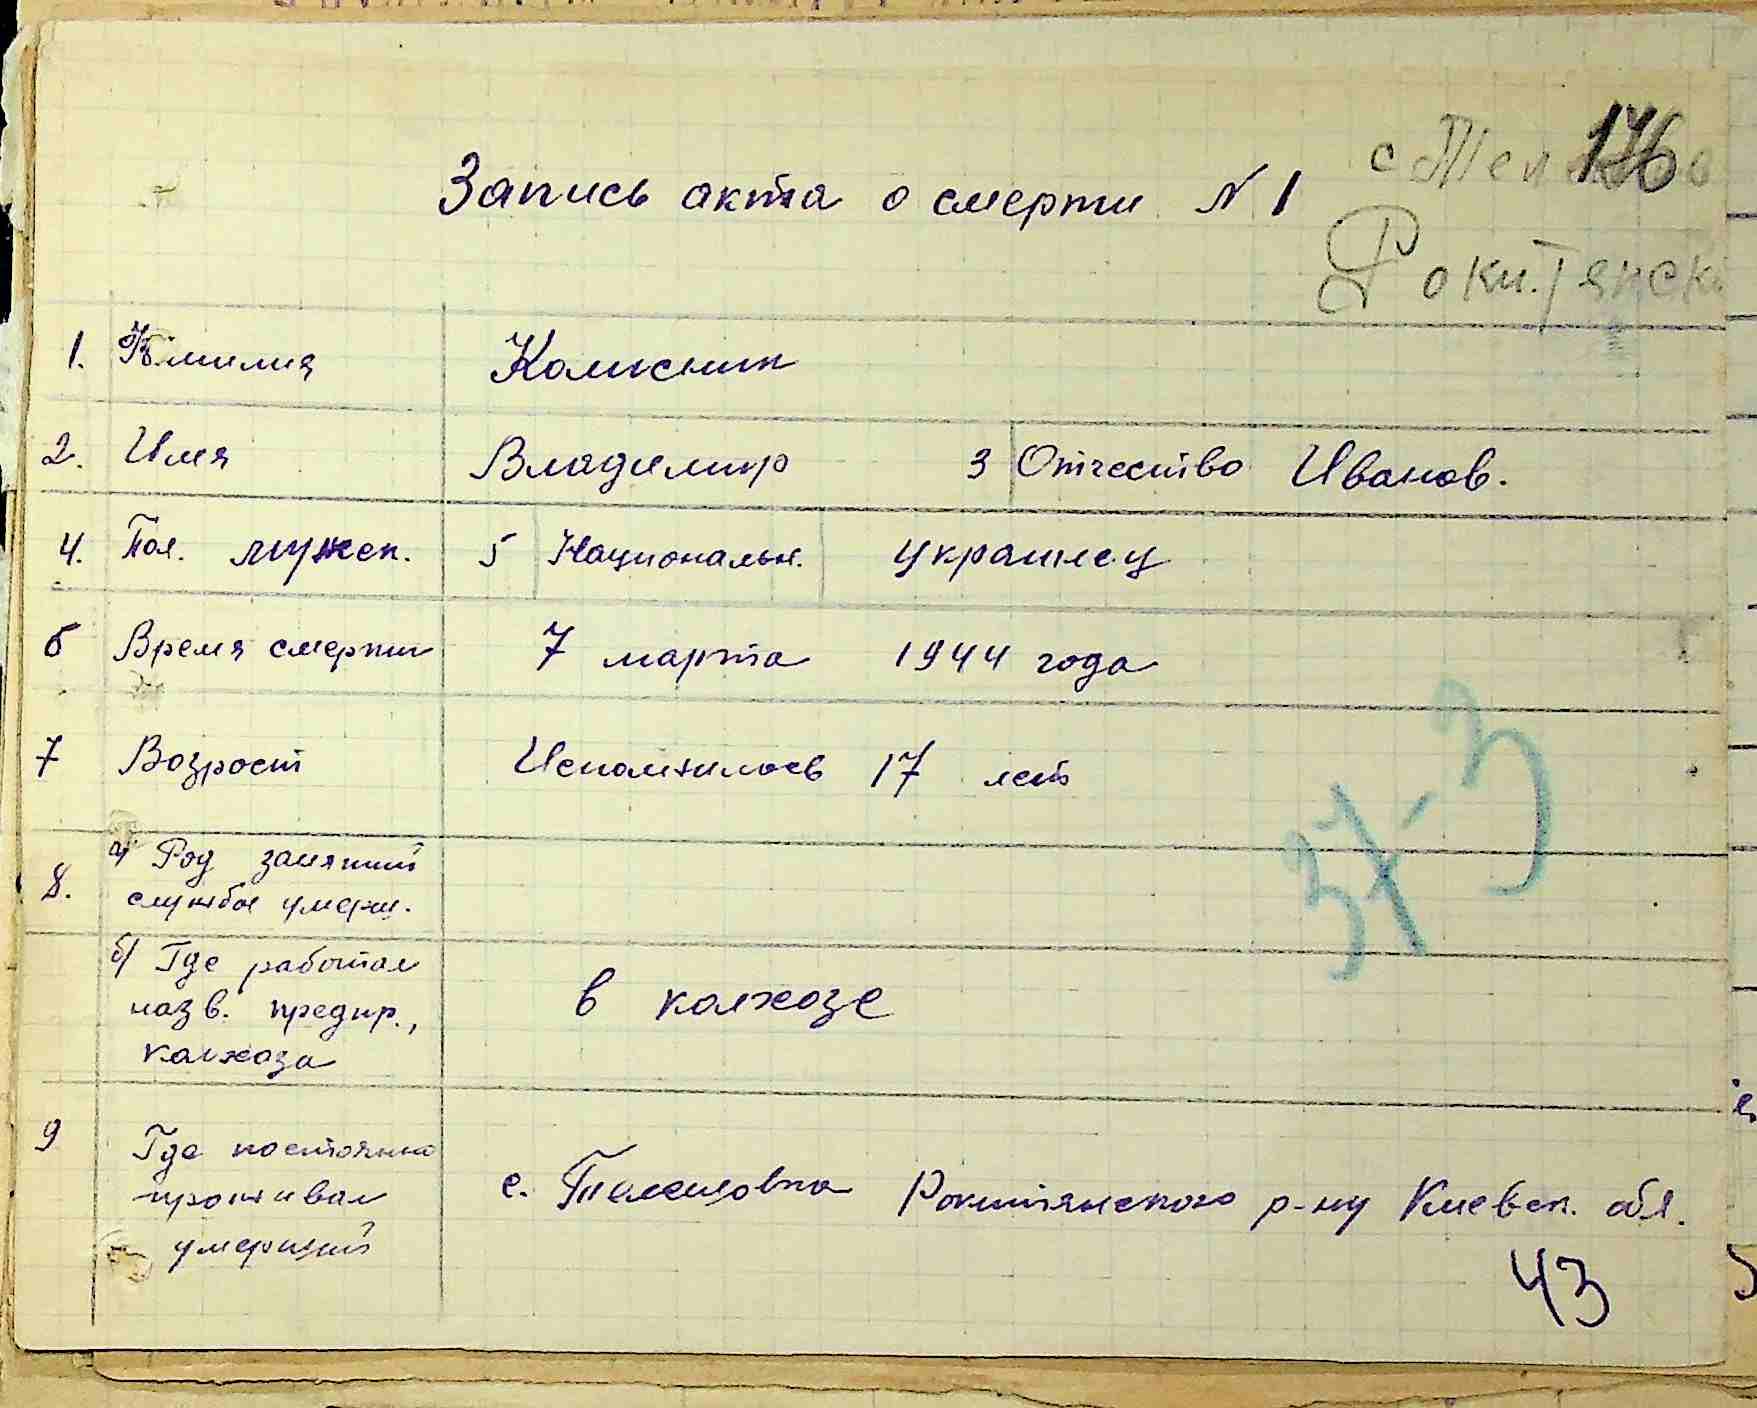 176
Запись акта о смерти N 1
Рокитянск
1. Фамилия Колисник
2. Имя Владимир 3 Отчество Иванов.
4. Пол. мужск. 5 Национальн. украинец
6 Время смерти 7 марта 1944 года
7 Возрост Исполнилось 17 лет
37-3
8. а) Род занятий
службы умерш.
б) Где работал
назв. предпр., в колхозе
колхоза
9 Где постоянно
проживал с. Телешовка Рокитянского р-ну Киевск. обл.
умерший
43